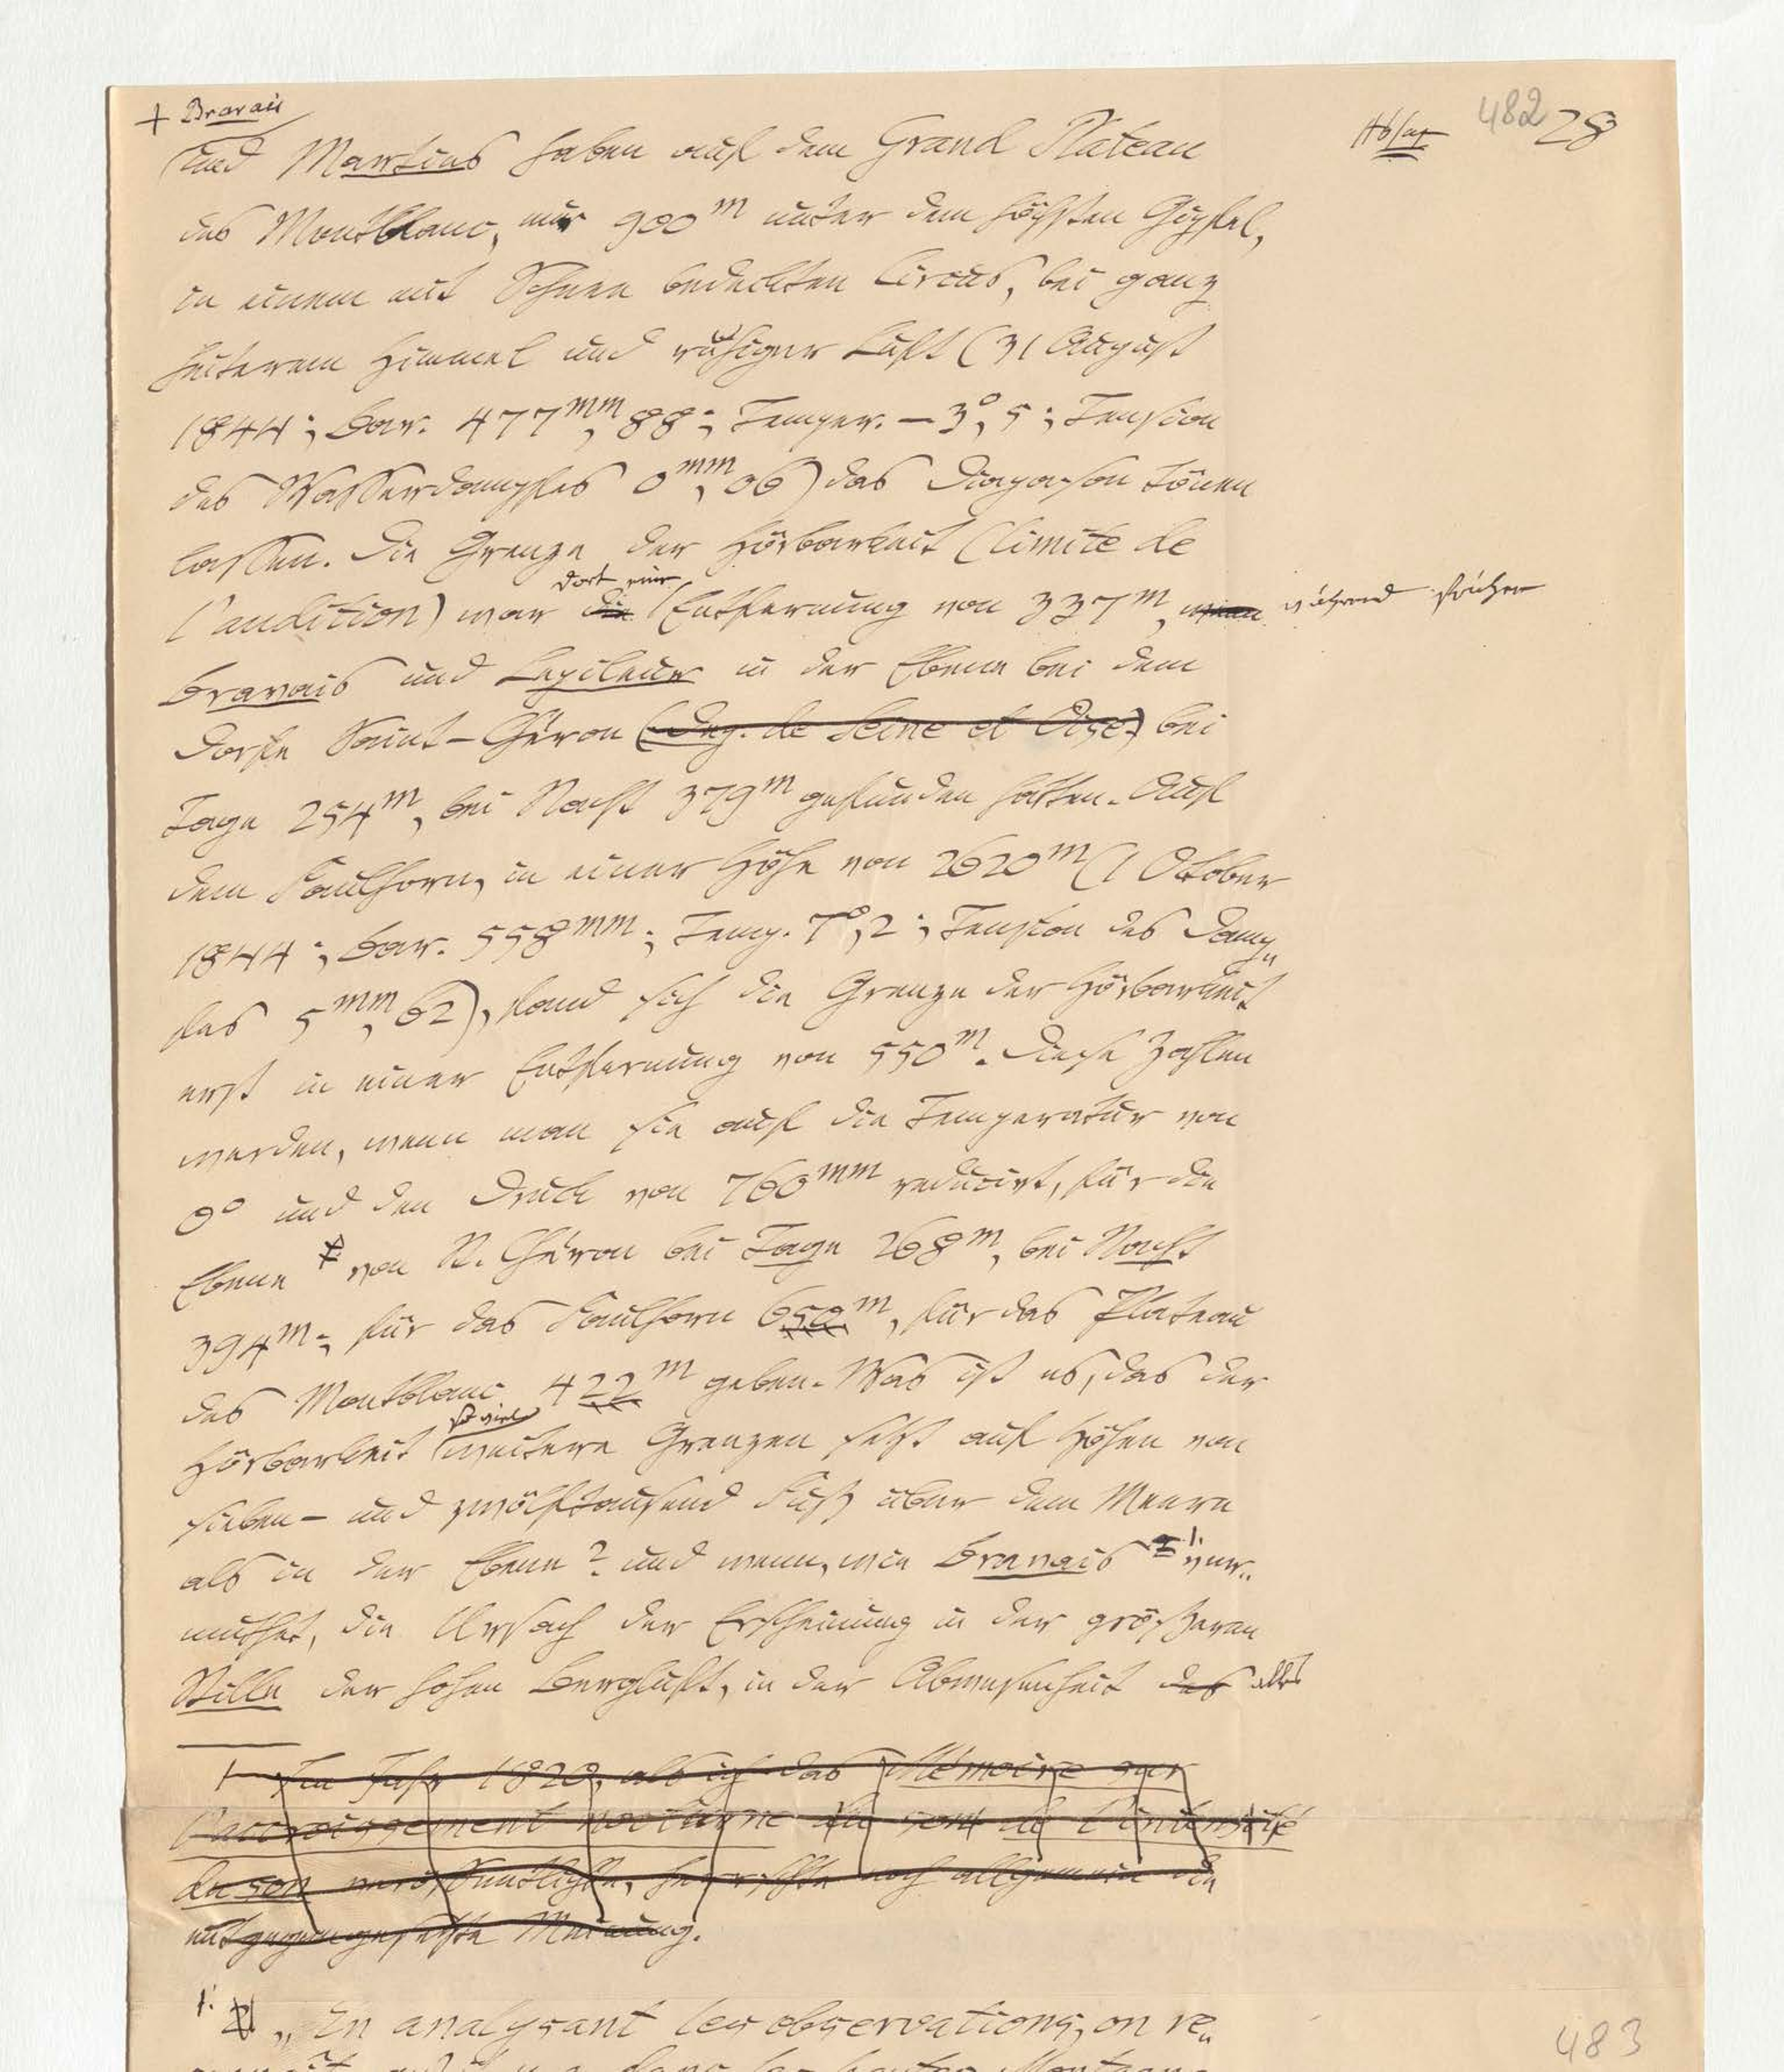 + Bravais
Absatz 482 28
und Martins haben auf dem Grand Plateau
des Montblanc, nur 900m unter dem höchsten Gipfel,
in einem mit Schnee bedeckten Circus, bei ganz
heiterem Himmel und ruhiger Luft (31 August
1844; Bar. 477mm,88; Temper. –3°,5; Tension
des Wasserdampfes 0mm,06) das Diapason tönen
lassen. Die Grenze der Hörbarkeit (limite de
dort eine
l'audition) war die Entfernung von 337m, wenn während früher
Bravais und Lepileur in der Ebene bei dem
Dorfe Saint-Chéron (Dep. de Seine et Oise) bei
Tage 254m, bei Nacht 379m gefunden hatten. Auf
dem Faulhorn, in einer Höhe von 2620m (1 October
1844; Bar. 558mm; Temp. 7°,2; Tension des Damp„
fes 5mm,62), fand sich die Grenze der Hörbarkeit
erst in einer Entfernung von 550m. Diese Zahlen
werden, wenn man sie auf die Temperatur von
0° und den Druck von 760mm reducirt, für die
Ebene von St. Chéron bei Tage 268m, bei Nacht
394m; für das Faulhorn 652m, für das Plateau
des Montblanc 422m geben. Was ist es, das der
so viel
Hörbarkeit weitere Grenzen setzt auf Höhen von
sieben- und zwölftausend Fuß über dem Meere
als in der Ebene? und wenn, wie Bravais 1. ver„
muthet, die Ursach der Erscheinung in der größeren
Stille der hohen Bergluft, in der Abwesenheit des alles
1 Im Jahr 1820, als ich das Mémoire sur
l'accroissement nocturne du son de l'intensité
du son veröffentlichte, herrschte noch allgemein die
entgegengesetzte Meinung.
1. „En analysant les observations, on re„
483